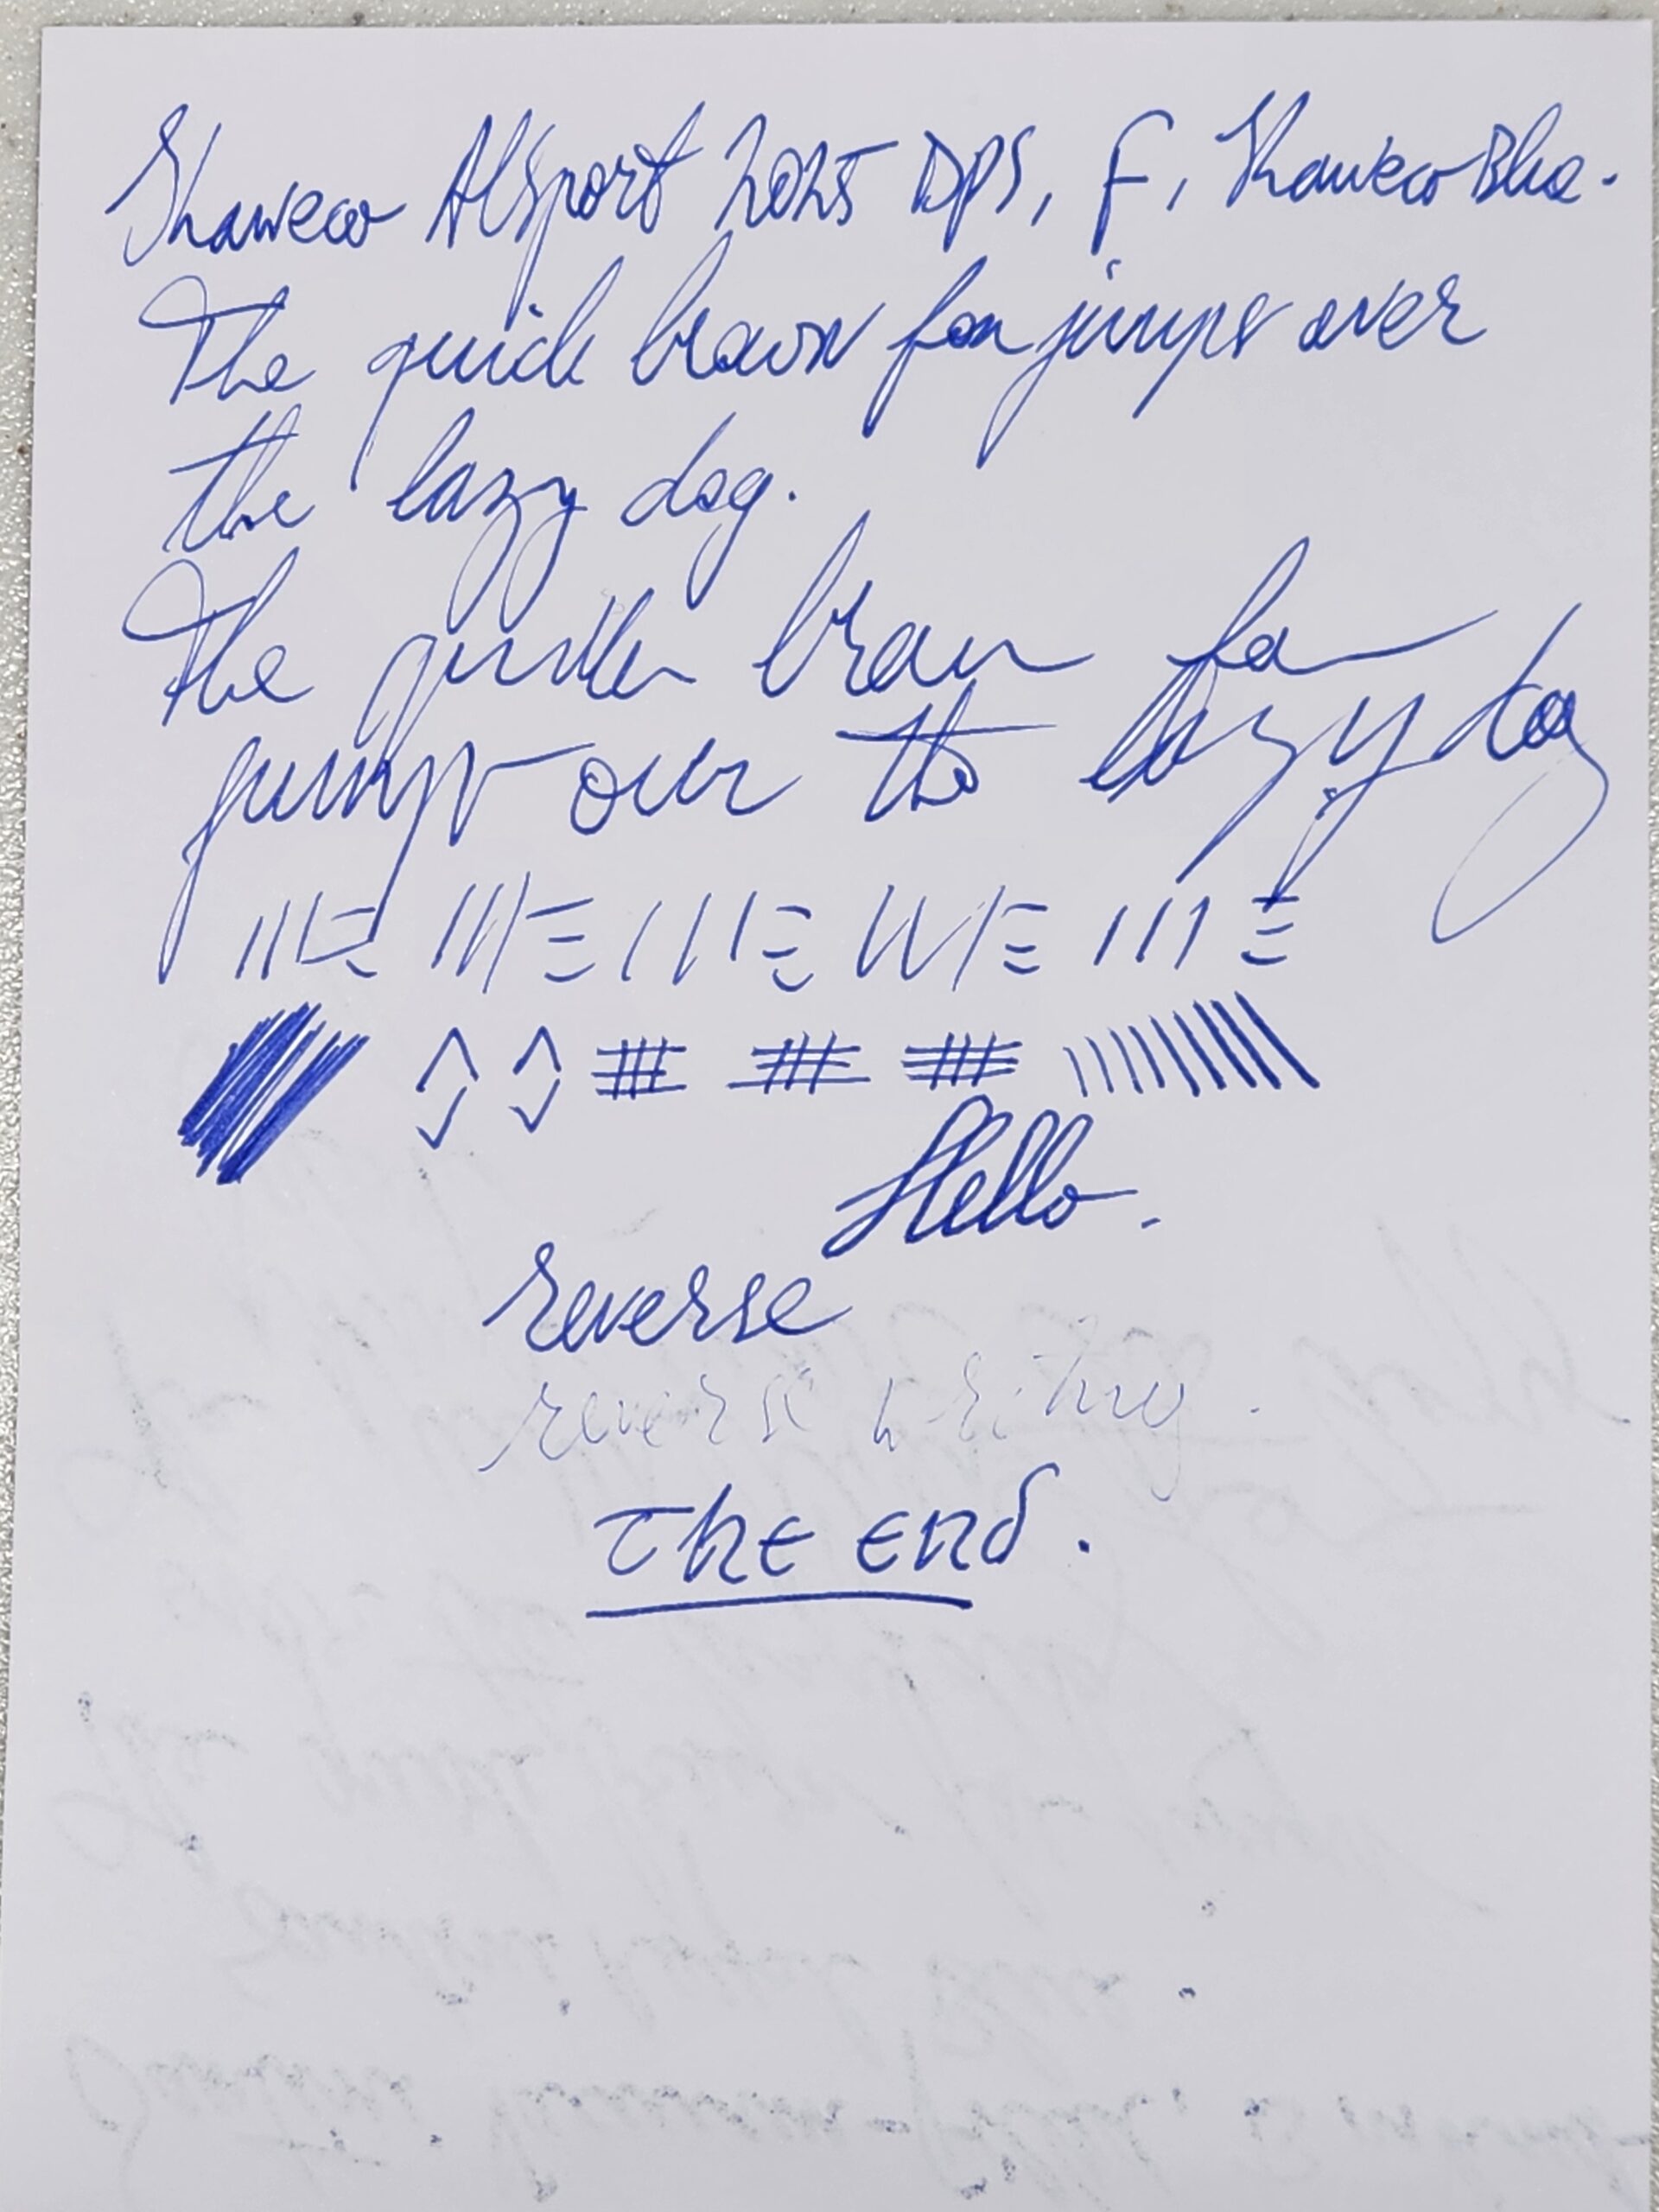 Kaweco AlSport 2025 DPS, F, Kaweco Blue.
The quick brown fox jumps over
the lazy dog.
The quick brown fox
jumps over the lazy dog
Hello.
reverse
reverse writing.
The end.